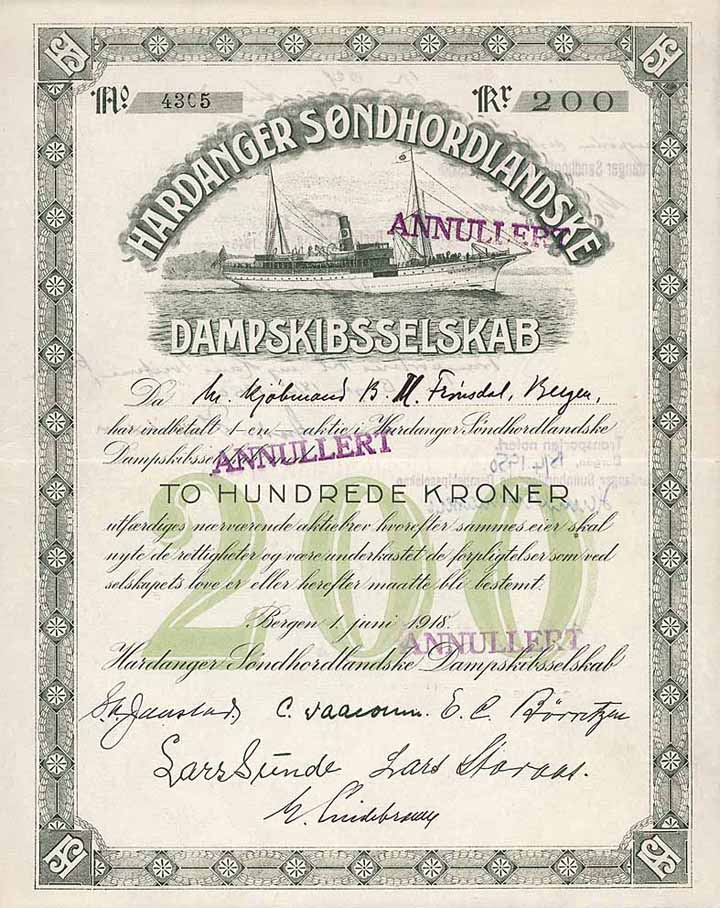 No 4305 Kr 200
HARDANGER SØNDHORDLANDSKE
ANNULLERT
DAMPSKIBSSELSKAB
Da hr. Kjøbmand B. M. Frønsdal, Bergen,
har indbetalt 1-en-aktie i Hardanger Søndhordlandske
Dampskibsselskab
ANNULLERT
TO HUNDREDE KRONER
200
utfærdiges nærværende aktiebrev hvorefter sammes eier skal
nyte de rettigheter og være underkastet de forpligtelser som ved
selskapets love er eller herefter maatte bli bestemt.
Bergen 1 juni 1918.
ANNULLERT
Hardanger Søndhordlandske Dampskibsselskab
E. C.
Lars Sunde Lars